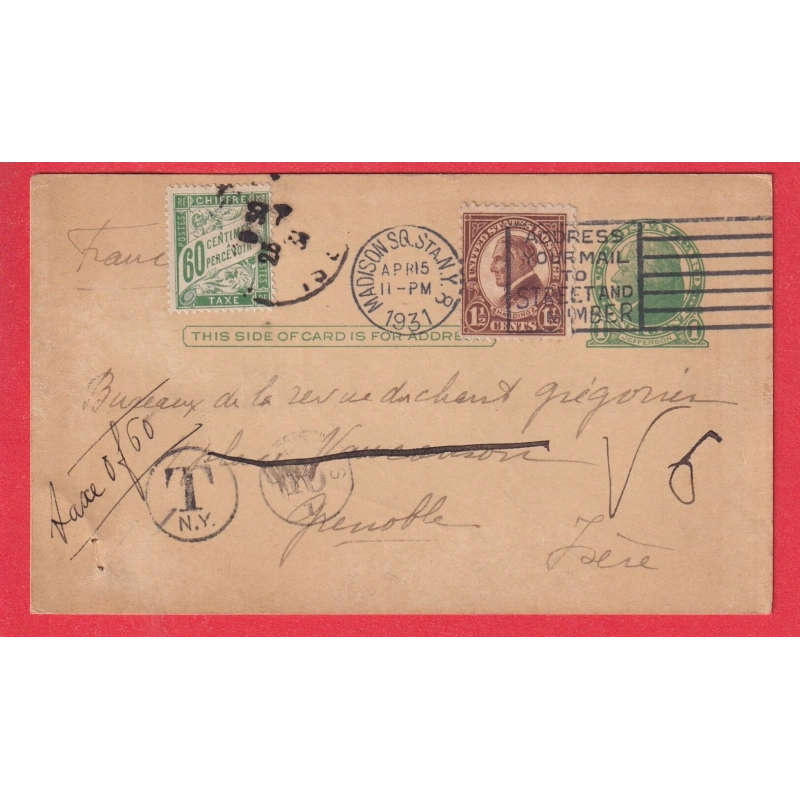 Franc
RF CHIFFRE RF
POSTES
60 CENTIM
PERCEVOIR
TAXE
MADISON SQ. STA. N.Y. 8
APR 15
11-PM
1931
UNITED STATES POSTAGE
HARDING
1½ CENTS 1½
ADDRESS
YOUR MAIL
TO
STREET AND
NUMBER
1 JEFFERSON 1
THIS SIDE OF CARD IS FOR ADDRESS
Bureaux de la revue du chant grégorien
place Vaucanson
Grenoble
Isère
taxe 0f60
T
N.Y.
V 6